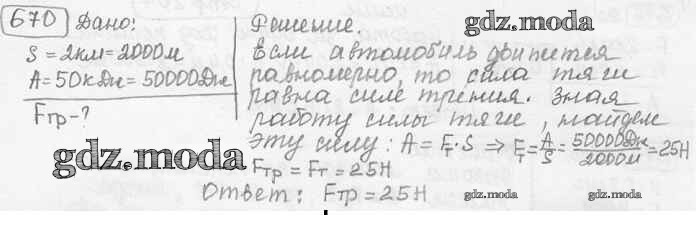 670 Дано:
S = 2км = 2000м
A = 50кДж = 50000Дж
Fтр - ?
Решение
gdz.moda
Если автомобиль движется
равномерно, то сила тяги
равна силе трения. Зная
работу силы тяги, найдем
эту силу: A = Fт · S ⇒ Fт = A/S = 50000Дж/2000м = 25Н
gdz.moda
Fтр = Fт = 25Н
Ответ: Fтр = 25Н
gdz.moda
gdz.moda